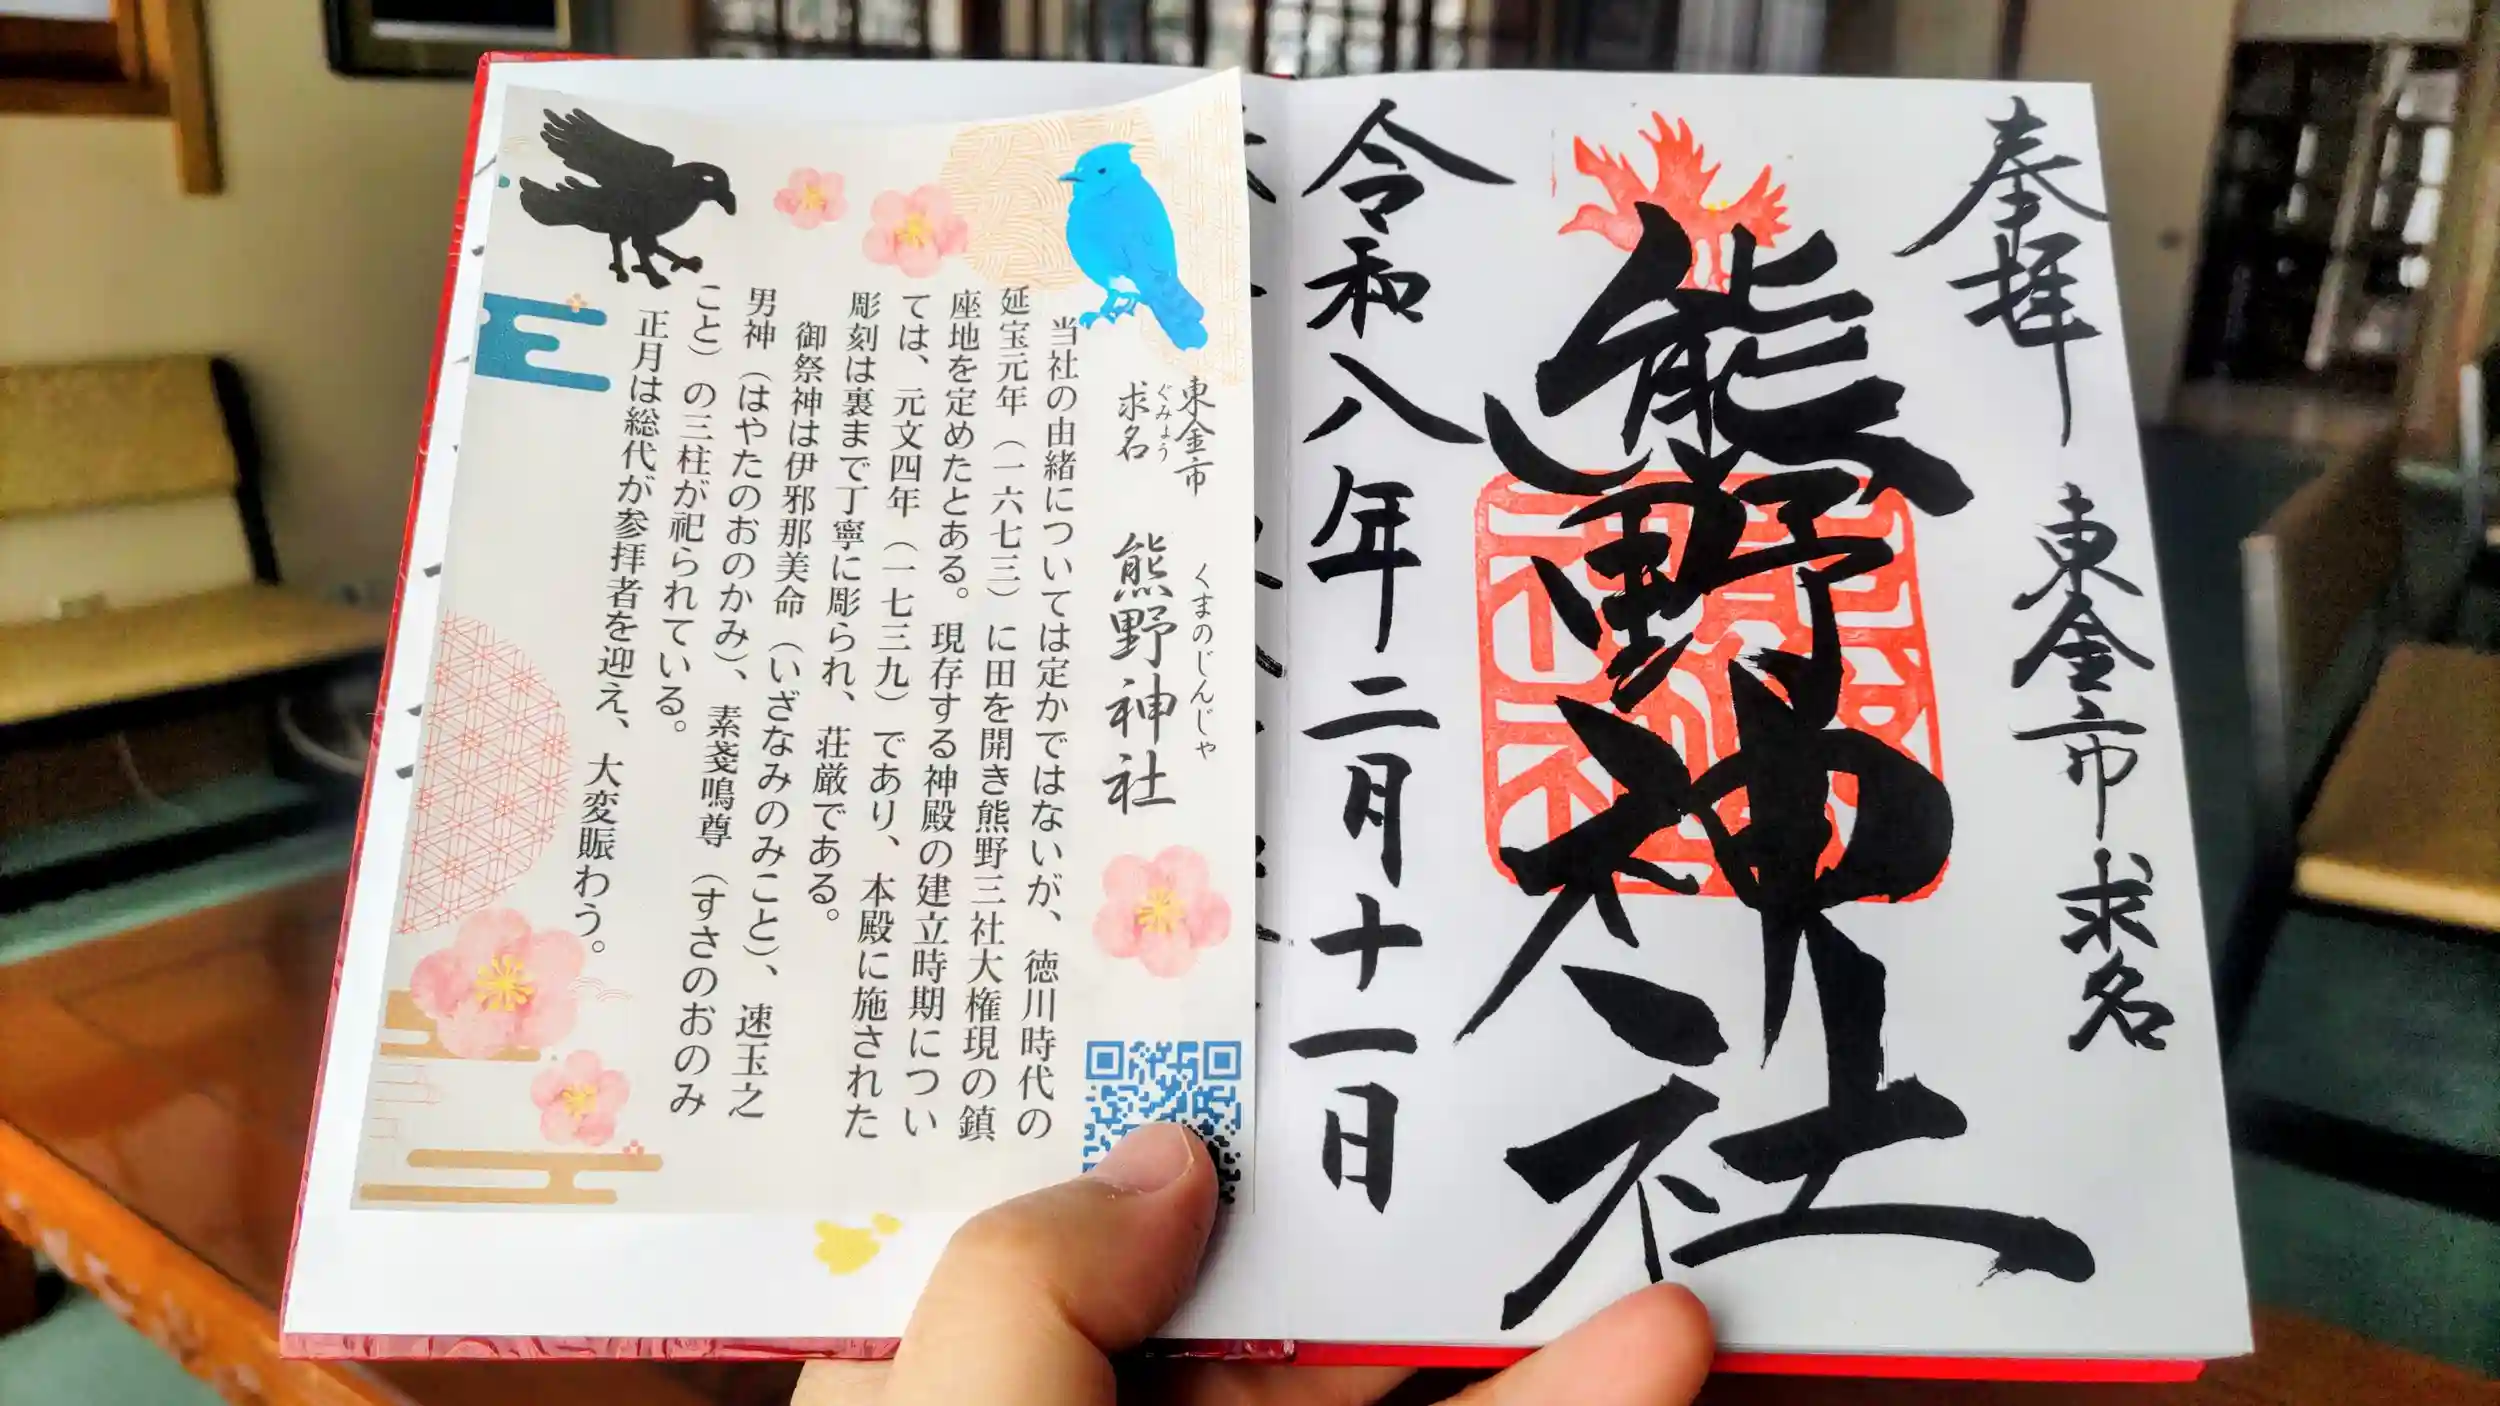 奉拝
東金市求名
熊野神社
令和八年二月十一日
東金市
求名
ぐみょう
熊野神社
くまのじんじゃ
当社の由緒については定かではないが、徳川時代の
延宝元年（一六七三）に田を開き熊野三社大権現の鎮
座地を定めたとある。現存する神殿の建立時期につい
ては、元文四年（一七三九）であり、本殿に施された
彫刻は裏まで丁寧に彫られ、荘厳である。
御祭神は伊邪那美命（いざなみのみこと）、速玉之
男神（はやたのおのかみ）、素戔鳴尊（すさのおのみ
こと）の三柱が祀られている。
正月は総代が参拝者を迎え、大変賑わう。